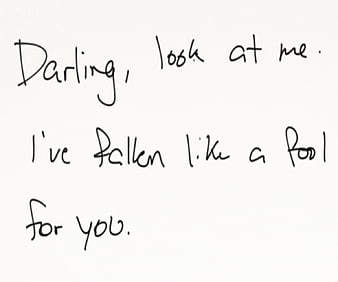 Darling, look at me.
I've fallen like a fool
for you.